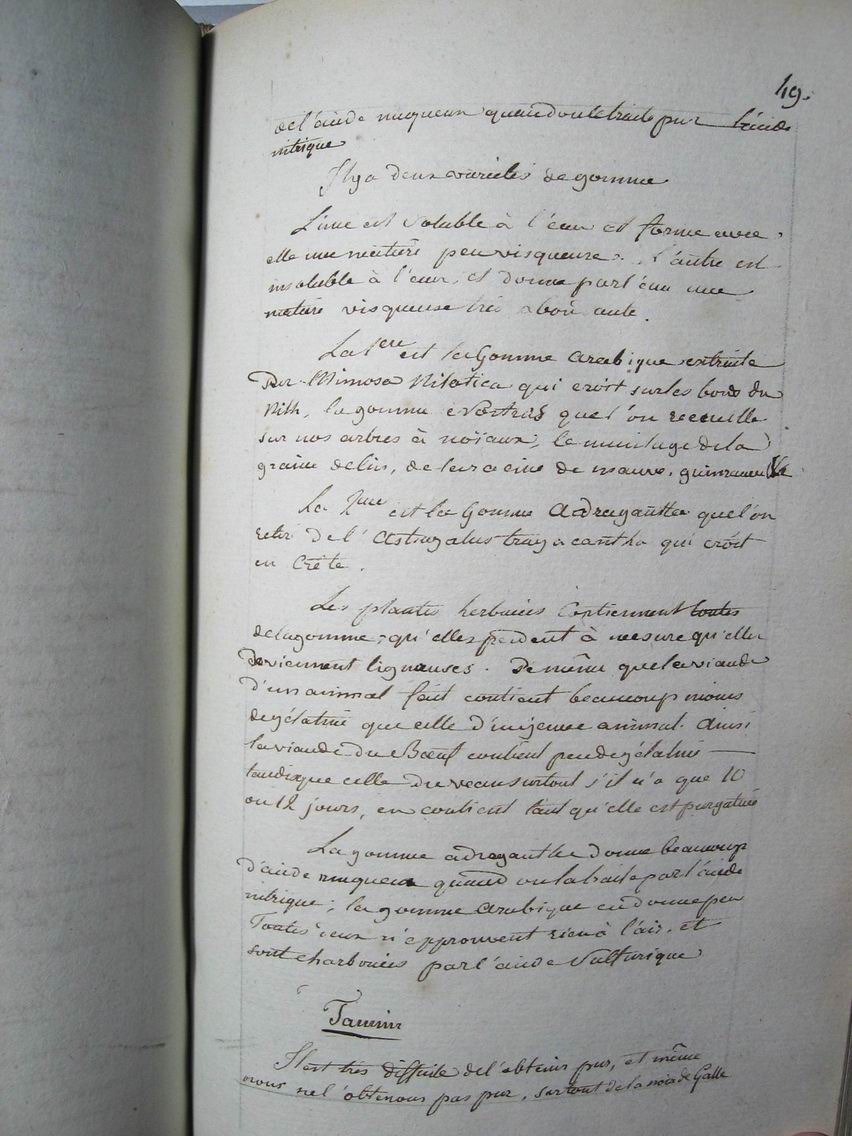 49.
de l'acide muqueux quand on le traite par l'acide
nitrique
Il y a deux variétés de gomme
L'une est soluble à l'eau et forme avec
elle une matière peu visqueuse. L'autre est
insoluble à l'eau, et donne par l'eau une
matière visqueuse très abondante.
La 1ere est la Gomme arabique extraite
Du Mimosa Nilotica qui croît sur les bords du
Nill, la gomme nostras que l'on recueille
sur nos arbres à noïaux, le mucilage de la
graine de lin, de la racine de mauve, guimauve &c
La 2me est la Gomme Adraganthe que l'on
retire de l'Astragalus tragacantha qui croît
en Crète.
Les plantes herbacées contiennent toutes
de la gomme, qu'elles perdent à mesure qu'elles
deviennent ligneuses. De même que la viande
D'un animal fait contient beaucoup moins
de gélatine que celle d'un jeune animal. Ainsi
la viande du Bœuf contient peu de gélatine
tandisque celle du veau surtout s'il n'a que 10
ou 12 jours, en contient tant qu'elle est purgative
La gomme adraganthe donne beaucoup
d'acide muqueux quand on la traite par l'acide
nitrique; la gomme arabique en donne peu
Toutes deux n'epprouvent rien à l'air, et
sont charbonées par l'acide Sulfurique
Tannin
Il est très difficile de l'obtenir pur, et même
nous ne l'obtenons pas pur, surtout de la noix de Galle